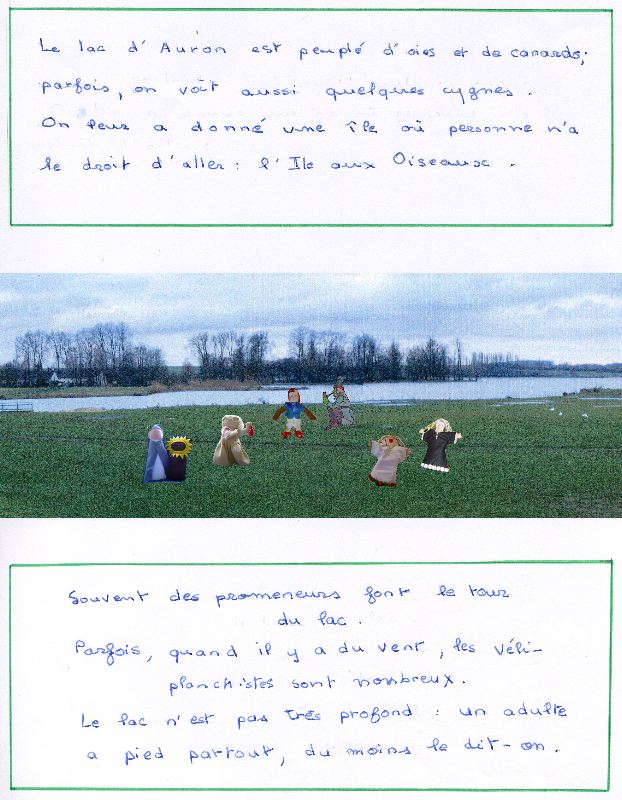 Le lac d'Auron est peuplé d'oies et de canards;
parfois, on voit aussi quelques cygnes.
On leur a donné une île où personne n'a
le droit d'aller : l'Ile aux Oiseaux.
Souvent des promeneurs font le tour
du lac.
Parfois, quand il y a du vent, les véli-
planchistes sont nombreux.
Le lac n'est pas très profond : un adulte
a pied partout, du moins le dit-on.